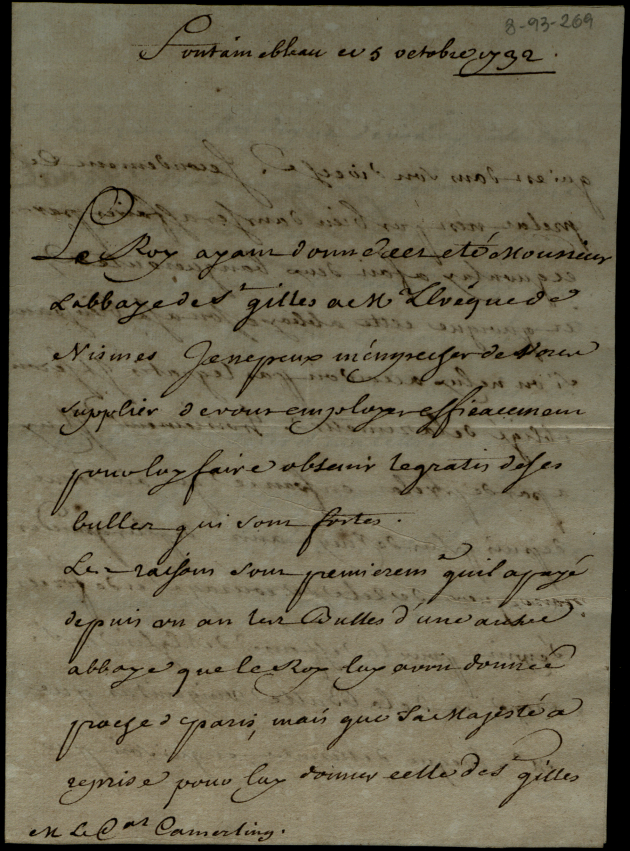 8-93-269
Fontainebleau ce 5 octobre 1732.
Le Roy ayant donné cet eté Monsieur
L'abbaye de St gilles a Mr L'Evêque de
Nismes Je ne peux m'empescher de Vous
supplier de vous employer efficacement
pour luy faire obtenir le gratis de ses
bulles qui sont fortes.
Les raisons sont premierem.t qu'il a payé
depuis un an les Bulles d'une autre
abbaye que le Roy luy avoit donnée
proche de paris, mais que Sa Majesté a
reprise pour luy donner celle de St gilles
M Le C.al Camerling.